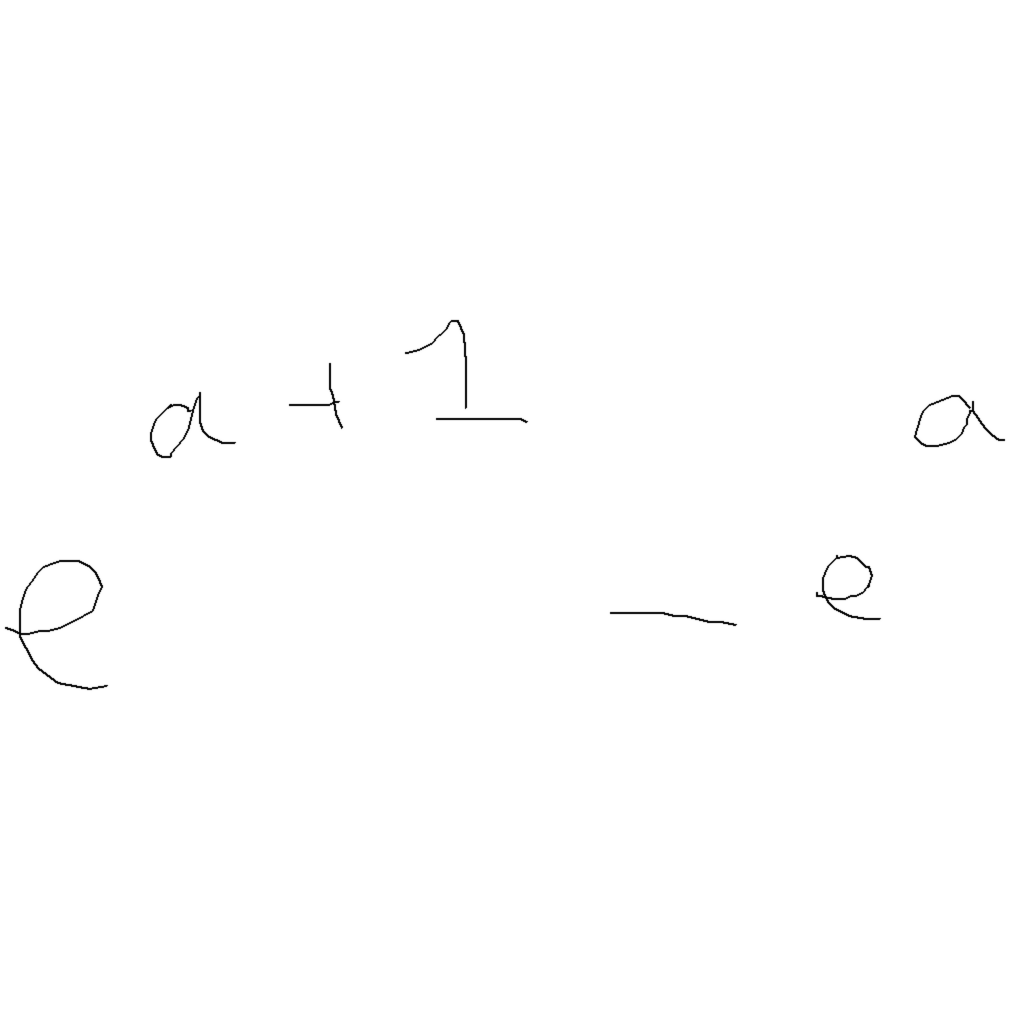 e^{a+1} - e^{a}